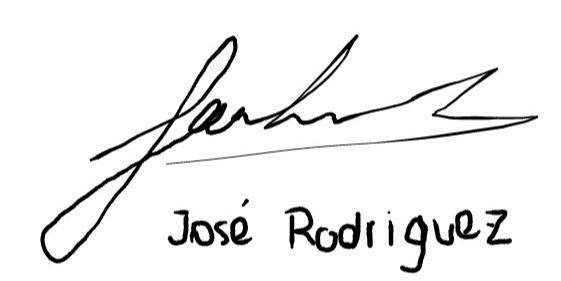 José Rodriguez